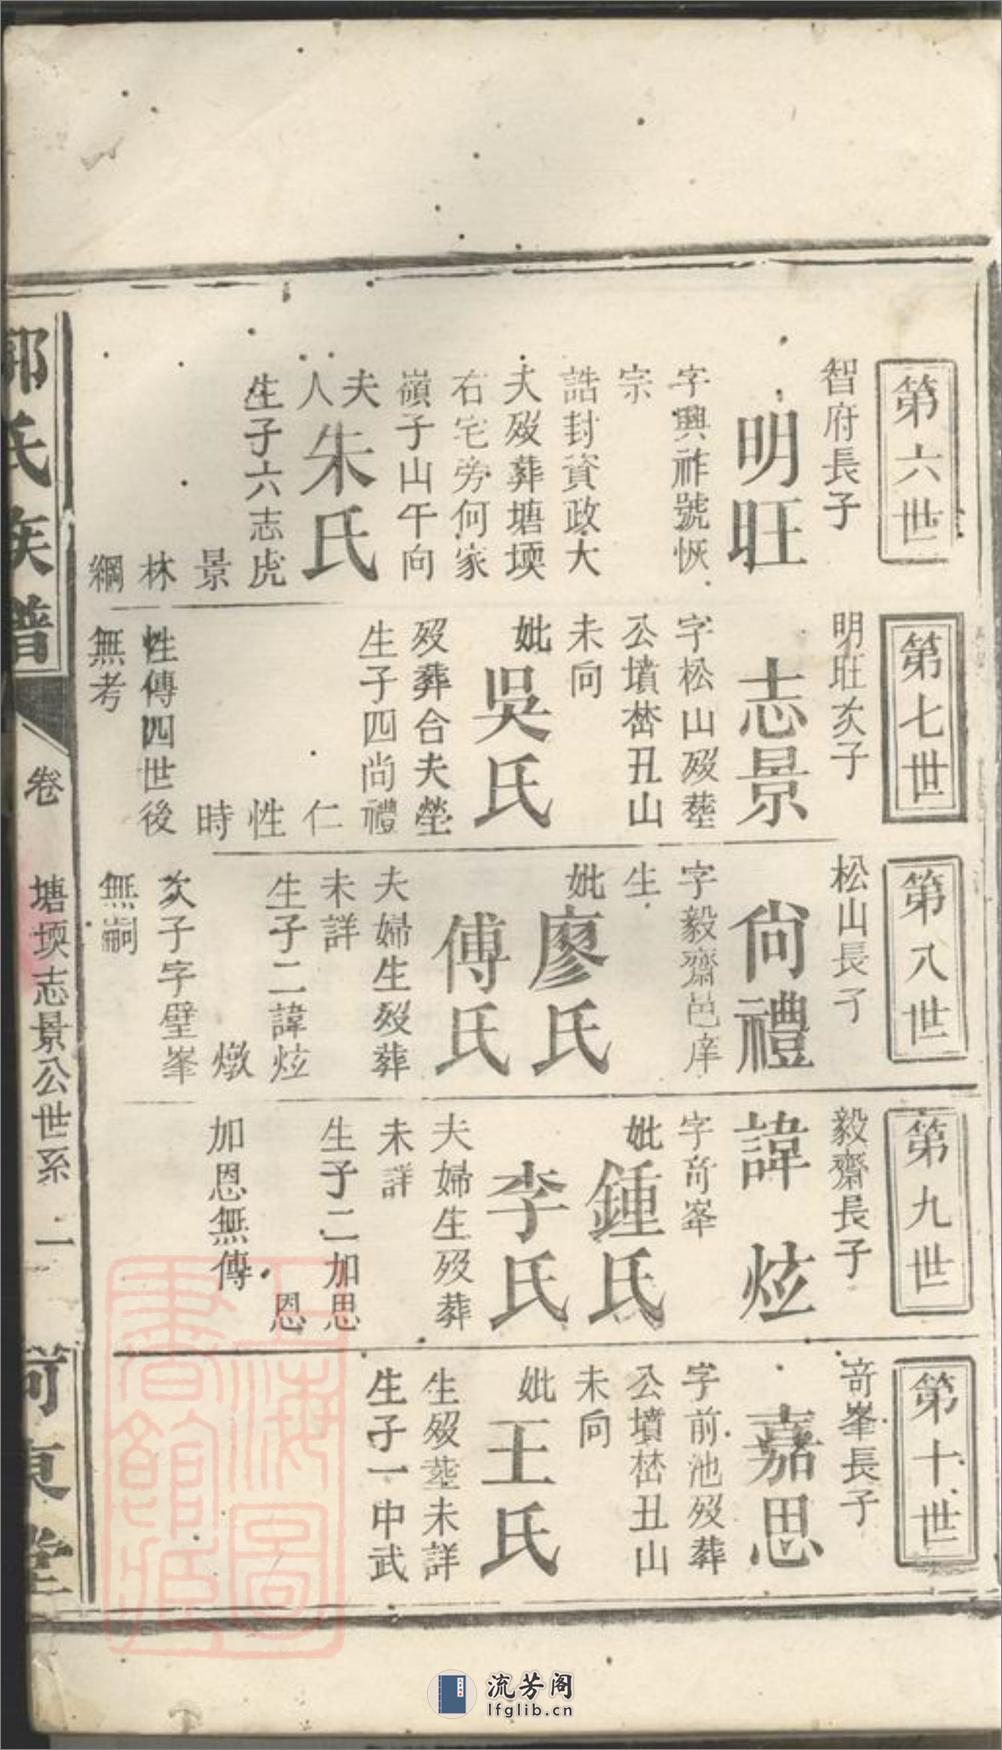 第六世
智府長子
明旺
字興祚號恢
宗
誥封資政大
夫歿葬塘㙐
右宅旁何家
嶺子山午向
夫
人
朱氏
生子六志虎
景
林
綱
第七世
明旺次子
志景
字松山歿塟
公墳𡊨丑山
未向
妣
吳氏
歿葬合夫塋
生子四尚禮
仁
性
時
性傳四世後
無考
第八世
松山長子
尙禮
字毅齋邑庠
生
妣
廖氏
傅氏
夫婦生歿葬
未詳
生子二諱炫
燉
次子字璧峯
無嗣
第九世
毅齋長子
諱炫
字竒峯
妣
鍾氏
李氏
夫婦生歿葬
未詳
生子二加思
恩
加恩無傳
第十世
竒峯長子
嘉思
字前池歿葬
公墳𡊨丑山
未向
妣
王氏
生歿塟未詳
生子一中武
郭氏族譜
卷
塘㙐志景公世系
二
河東堂
上海圖書館藏
流芳阁
lfglib.cn